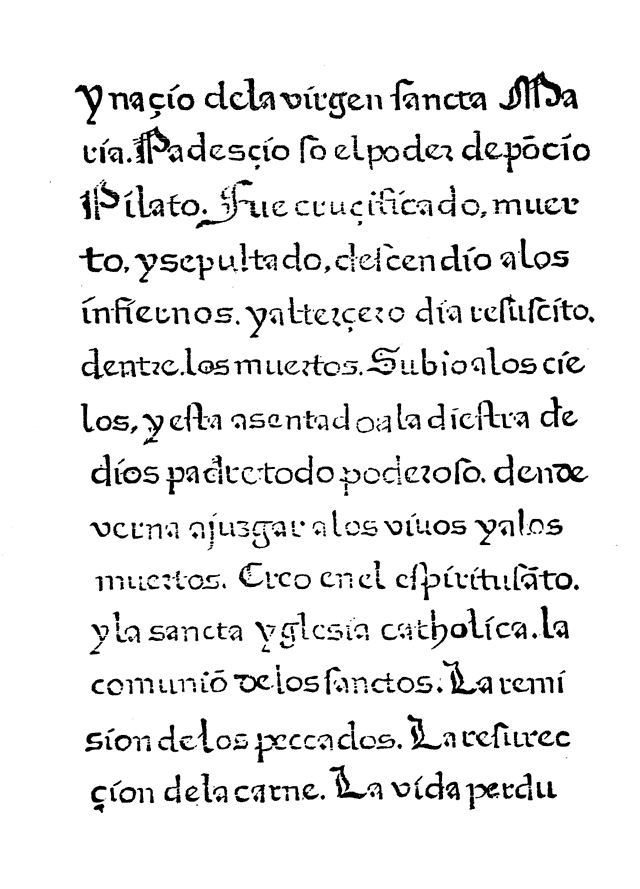 y naçio dela virgen sancta Ma
ria. Padesçio so el poder de põcio
Pilato. Fue cruçificado, muer
to, y sepultado, descendio a los
infiernos. y al terçero dia resuscito.
dentre. los muertos. Subio a los cie
los, y esta asentado a la diestra de
dios padre todo poderoso. dende
verna a juzgar a los viuos y a los
muertos. Creo en el espiritu sãto.
y la sancta yglesia catholica. la
comuniõ de los sanctos. La remi
sion de los peccados. La resurec
çion dela carne. La vida perdu